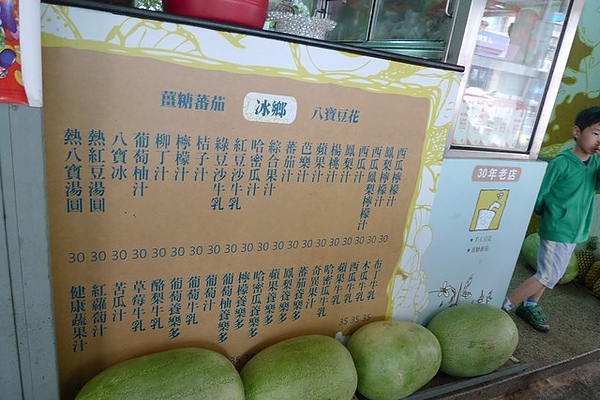 薑糖蕃茄
冰鄉
八寶豆花
西瓜檸檬汁
鳳梨檸檬汁
西瓜鳳梨檸檬汁
西瓜汁
鳳梨汁
楊桃汁
蘋果汁
芭樂汁
蕃茄汁
綜合果汁
哈密瓜汁
紅豆沙牛乳
綠豆沙牛乳
桔子汁
檸檬汁
柳丁汁
葡萄柚汁
八寶冰
熱紅豆湯圓
熱八寶湯圓
30 30 30 30 30 30 30 30 30 30 30 30 30 30 30 30 30 30
布丁牛乳
木瓜牛乳
西瓜牛乳
蘋果牛乳
哈密瓜牛乳
奇異果汁
蕃茄養樂多
鳳梨養樂多
蘋果養樂多
哈密瓜養樂多
檸檬養樂多
葡萄柚養樂多
葡萄汁
葡萄牛乳
葡萄養樂多
酪梨牛乳
草莓牛乳
苦瓜汁
紅蘿蔔汁
健康蔬果汁
35 35 35
30年老店